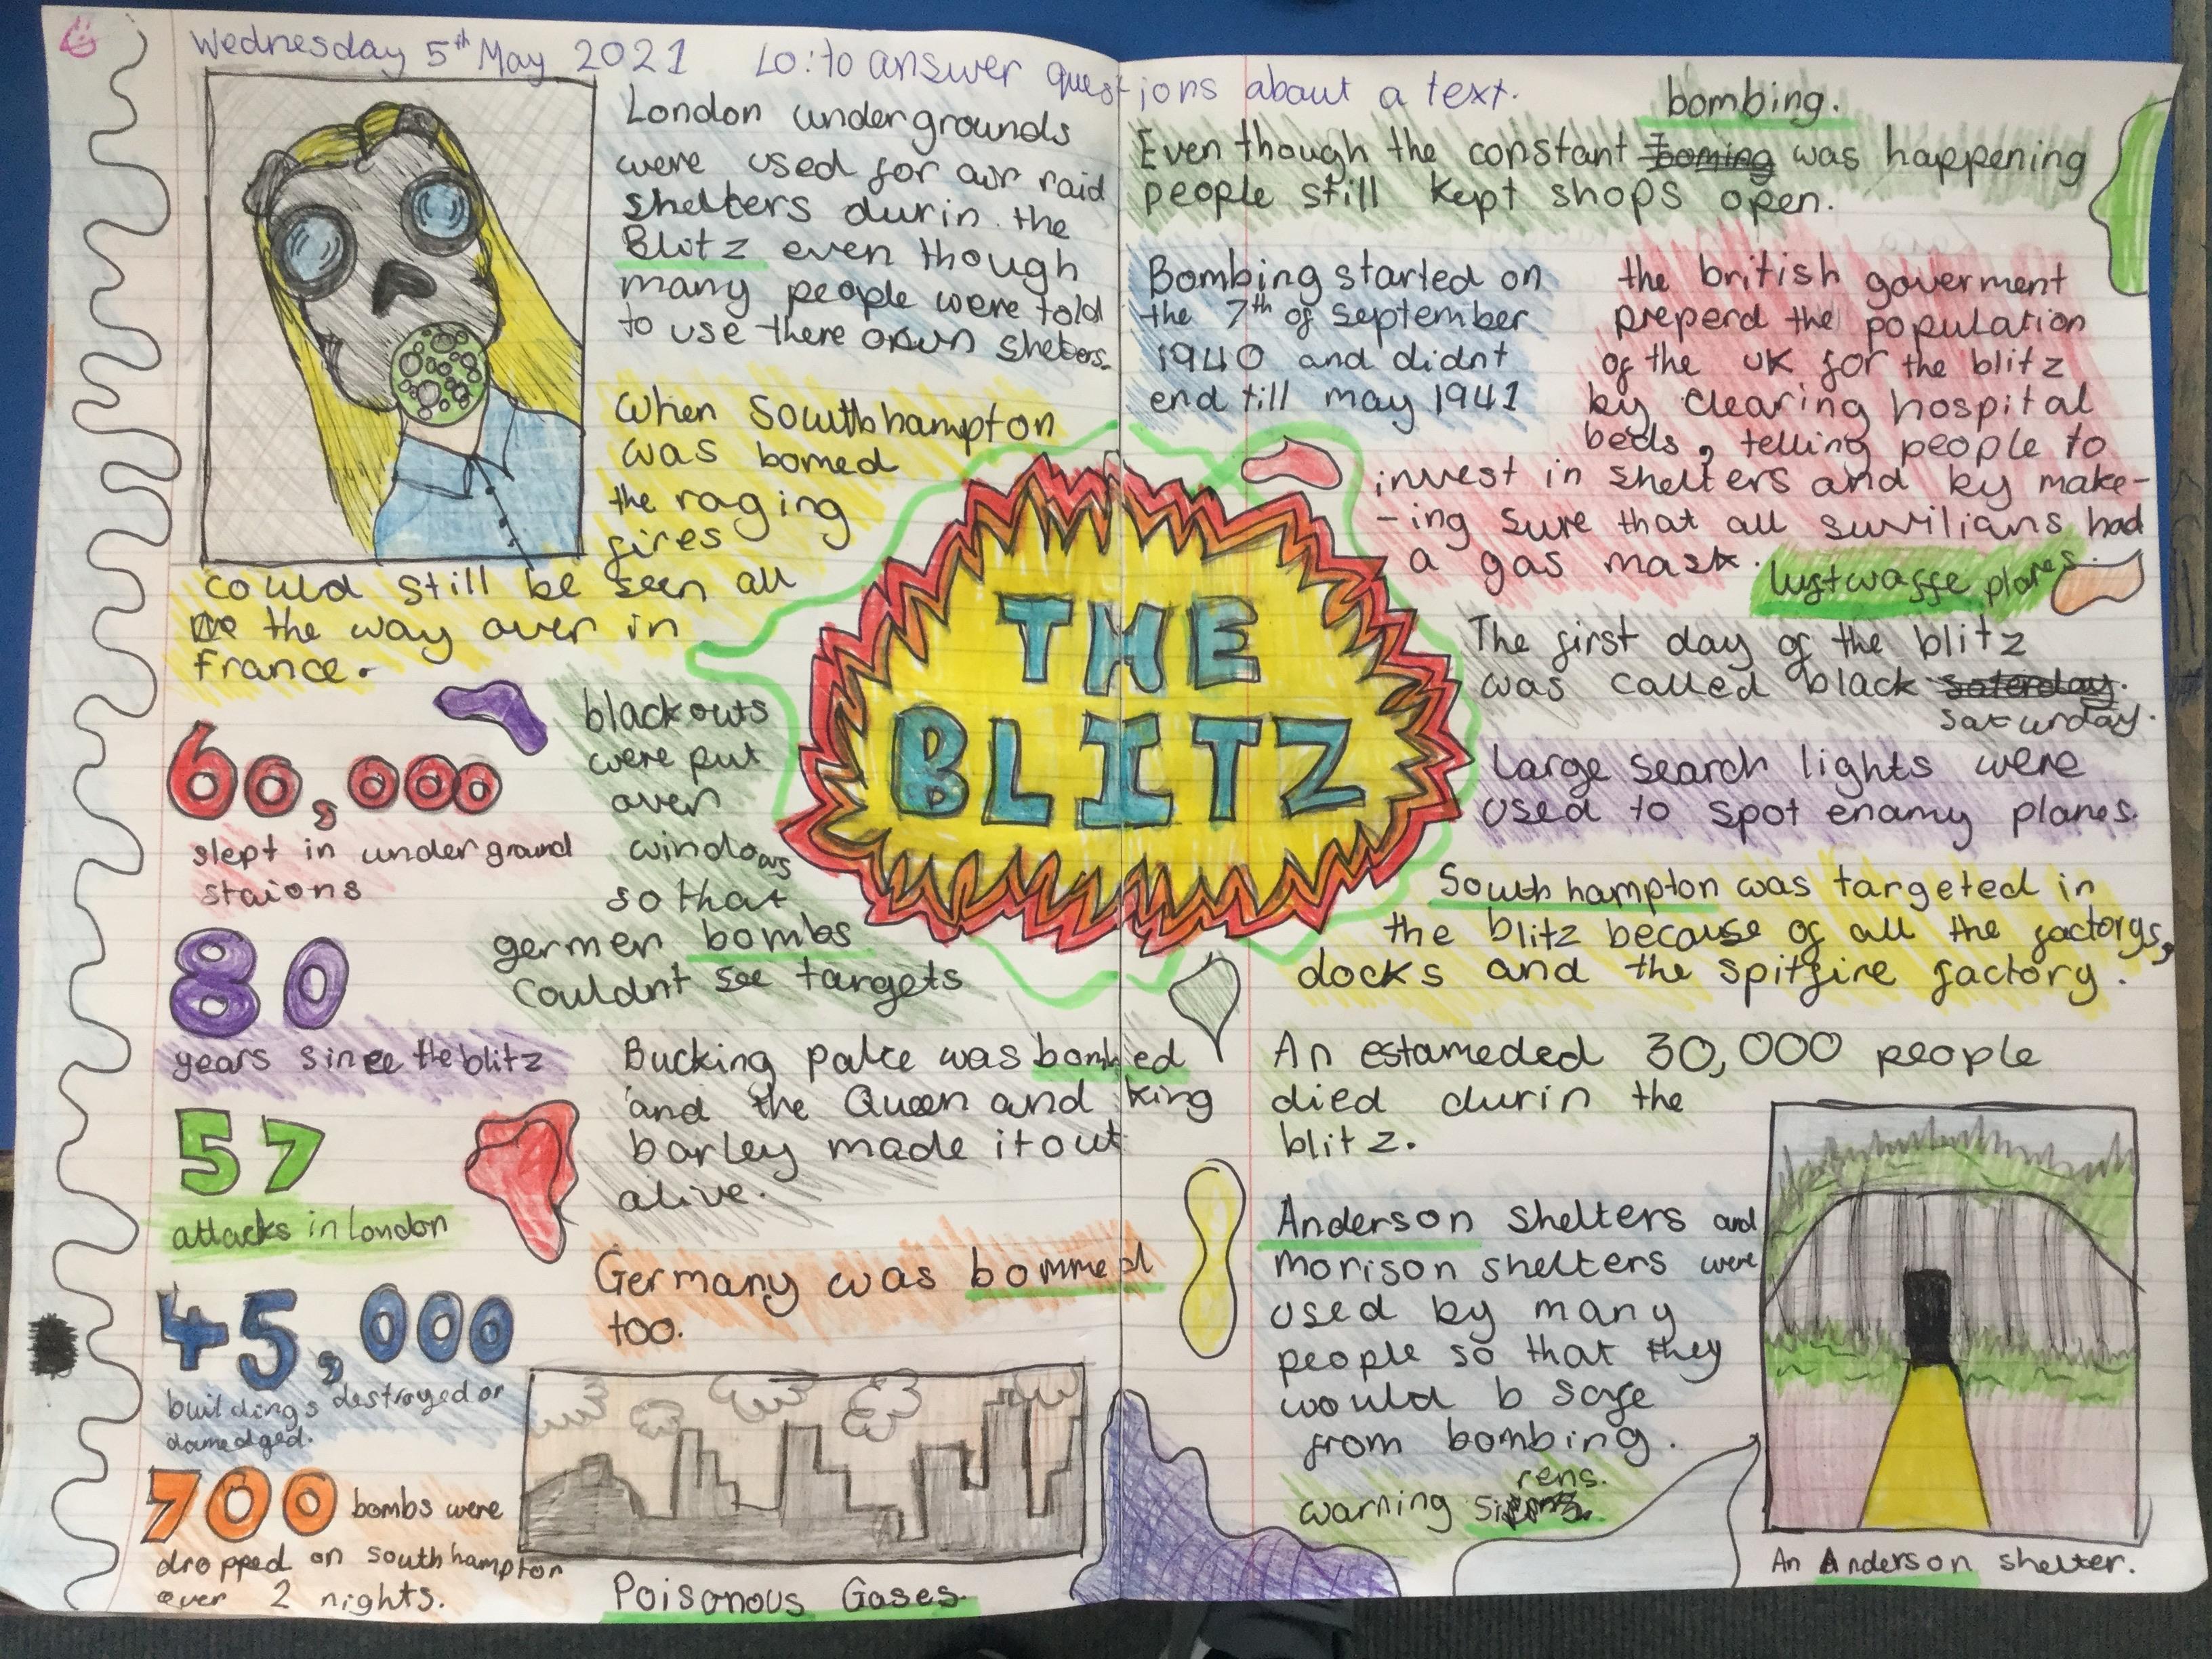 Wednesday 5th May 2021 Lo: to answer questions about a text.
London undergrounds
were used for air raid
shelters durin the
Blitz even though
many people were told
to use there own shelters.
When Southhampton
was bomed
the raging
fires
could still be seen all
the way over in
france.
60,000
slept in underground
staions
80
years since the blitz
57
attacks in london
45,000
buildings destroyed or
damedged.
700 bombs were
dropped on southhampton
over 2 nights.
blackouts
were put
over
windows
so that
germen bombs
couldnt see targets
Bucking palce was bombed
and the Queen and king
barley made it out
alive.
Germany was bommed
too.
Poisonous Gases.
THE
BLITZ
bombing.
Even though the constant boming was happening
people still kept shops open.
Bombing started on
the 7th of september
1940 and didnt
end till may 1941
the british goverment
preperd the population
of the UK for the blitz
by clearing hospital
beds, telling people to
invest in shelters and by make-
-ing sure that all suvilians had
a gas mask.
luftwaffe planes.
The first day of the blitz
was called black saterday.
saturday.
Large search lights were
used to spot enamy planes.
Southhampton was targeted in
the blitz because of all the factorys,
docks and the spitfire factory.
An estameded 30,000 people
died durin the
blitz.
Anderson shelters and
morison shelters were
used by many
people so that they
would b safe
from bombing.
rens.
warning si
An Anderson shelter.